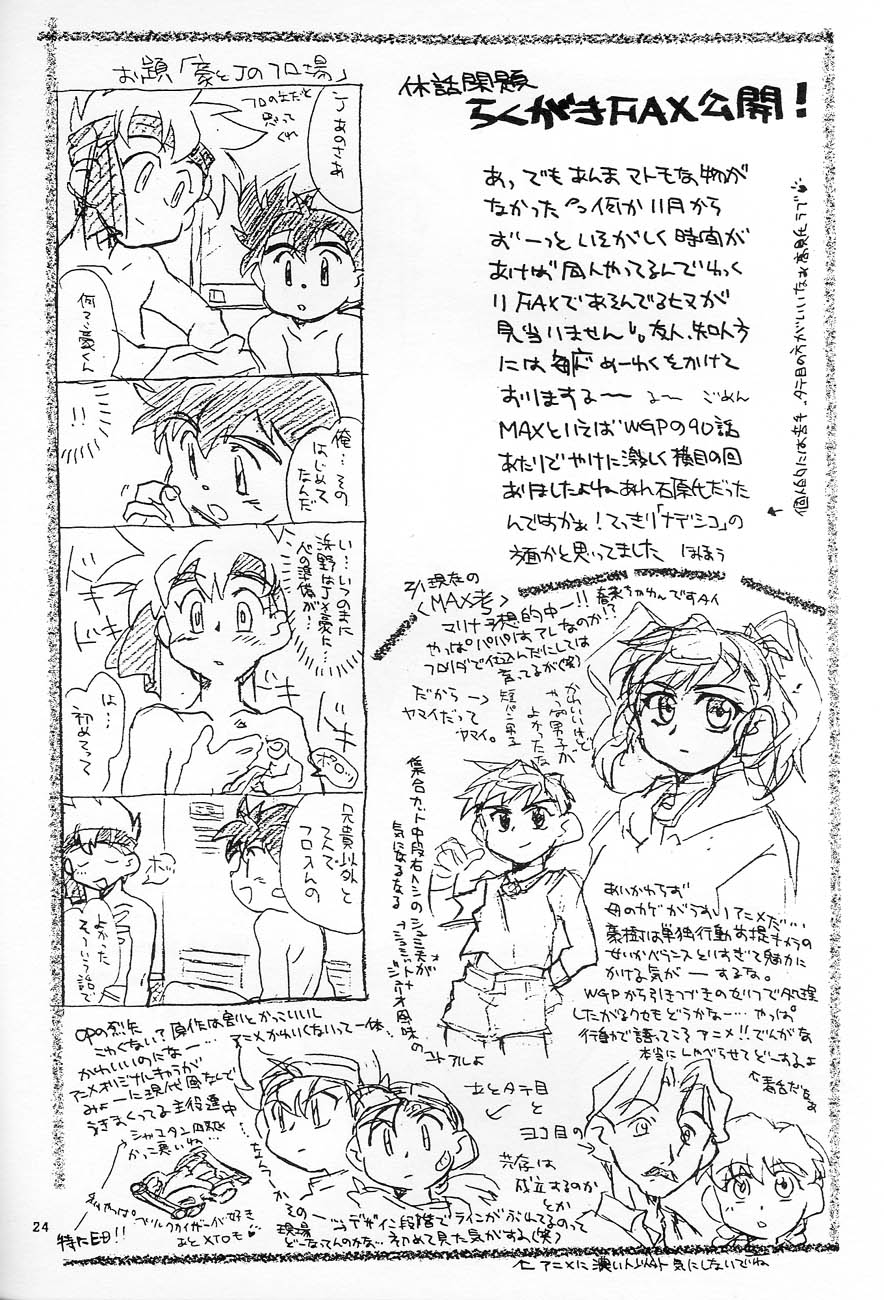 お題「豪とJのフロ場」
フロの中だと
思って
くれ
Jあのさあ
何?豪くん
!!
俺…その
はじめて
なんだ
い…いつのまに
浜野はJ×豪に…
への準備が…
ドキ
ドキ
ドキ
は…
初めてって
ポロッ
兄貴以外と
2人で
フロ入んの
ホッ
よかった
そういう話で
休話閑題
らくがきFAX公開!
あっでもあんまマトモな物が
なかった 何か11月から
ずーっといそがしく時間が
あけば同人やってるんでゆっく
りFAXであそんでるヒマが
見当りません。友人、知人方
には毎度めーわくをかけて
おりまする〜 るー ごめん
MAXといえばWGPの90話
あたりでやけに激しく横目の回
ありましたよねあれ石原氏だった
んですかぁ!てっきり「ナデシコ」の
方面かと思ってました ほほう
2/1現在の
〈MAX考〉
マリナ予想的中ー!!
やっぱパパはアレなのか!?
フロリダで仕込んだにしては
育ってるが(笑)
だから→
ヤマイだって
ヤマイ。
短パン男子
かわいいけど
やっぱ男子が
よかったな
集合カット中段右トシの
気になるなる
あいかわらず
母のカゲがうすいアニメだ…
豪樹は単独行動前提キャラの
せいかバランスとりすぎて魅力に
かける気がーするな。
WGPから引きつづきのセリフで処理
したがるクセもどうかなー…やっぱ
行動で語ってこそアニメ!!でんがな
本当にしゃべらせてどーするよ
OPの烈矢
こわくない?原作は割とかっこいいし
かわいいのになー…
アニメかわいくないって一体…
アニメオリジナルキャラが
みょーに現代風なんで
うきまくってる主役連中
かっこ悪いね…
特にED!!
タテ目と
ヨコ目の
共存は
成立するのか
とか
その一
デザイン段階でラインがぶれてるのって
現場
どーなってんのかな…初めて見た気がする(笑)
←アニメに濃い人以外気にしないでね
24